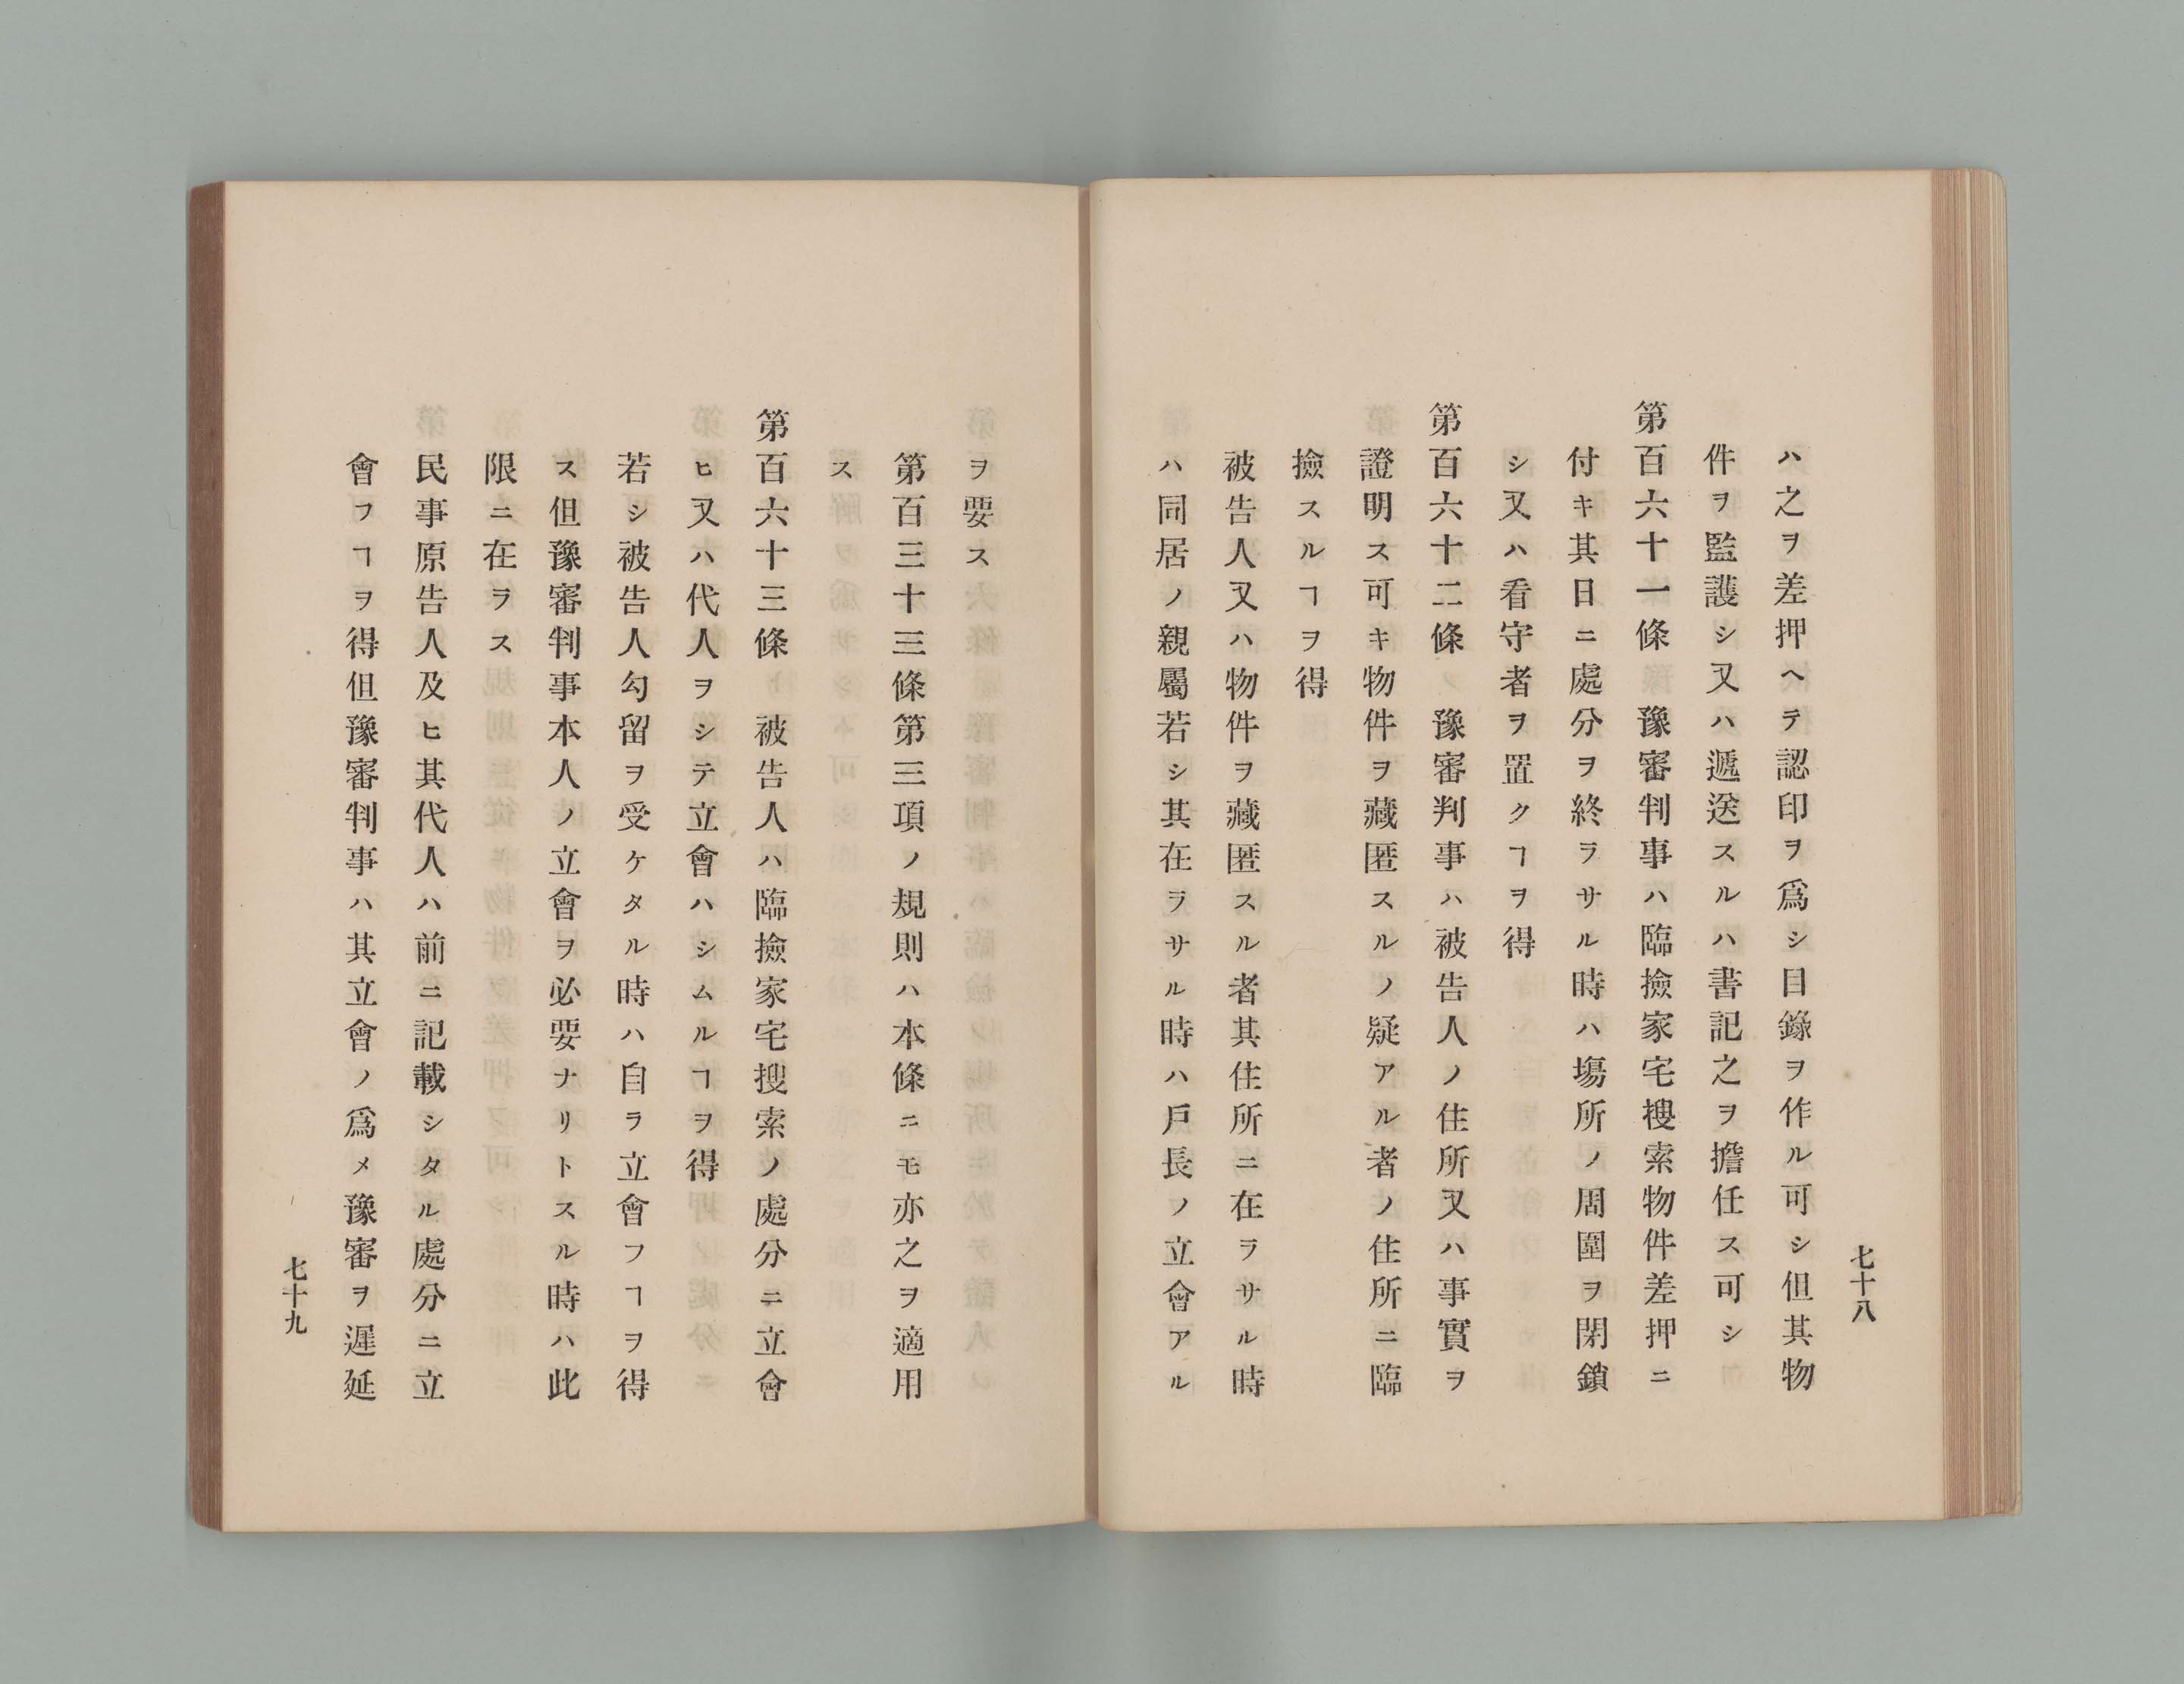 七十八
ハ之ヲ差押ヘテ認印ヲ爲シ目錄ヲ作ル可シ但其物
件ヲ監護シ又ハ遞送スルハ書記之ヲ擔任ス可シ
第百六十一條　豫審判事ハ臨撿家宅搜索物件差押ニ
付キ其日ニ處分ヲ終ラサル時ハ塲所ノ周圍ヲ閉鎖
シ又ハ看守者ヲ置クヿヲ得
第百六十二條　豫審判事ハ被告人ノ住所又ハ事實ヲ
證明ス可キ物件ヲ藏匿スルノ疑アル者ノ住所ニ臨
撿スルヿヲ得
被告人又ハ物件ヲ藏匿スル者其住所ニ在ラサル時
ハ同居ノ親屬若シ其在ラサル時ハ戶長ノ立會アル
ヲ要ス
第百三十三條第三項ノ規則ハ本條ニモ亦之ヲ適用
ス
第百六十三條　被告人ハ臨撿家宅搜索ノ處分ニ立會
ヒ又ハ代人ヲシテ立會ハシムルヿヲ得
若シ被告人勾留ヲ受ケタル時ハ自ラ立會フヿヲ得
ス但豫審判事本人ノ立會ヲ必要ナリトスル時ハ此
限ニ在ラス
民事原告人及ヒ其代人ハ前ニ記載シタル處分ニ立
會フヿヲ得但豫審判事ハ其立會ノ爲メ豫審ヲ遲延
七十九